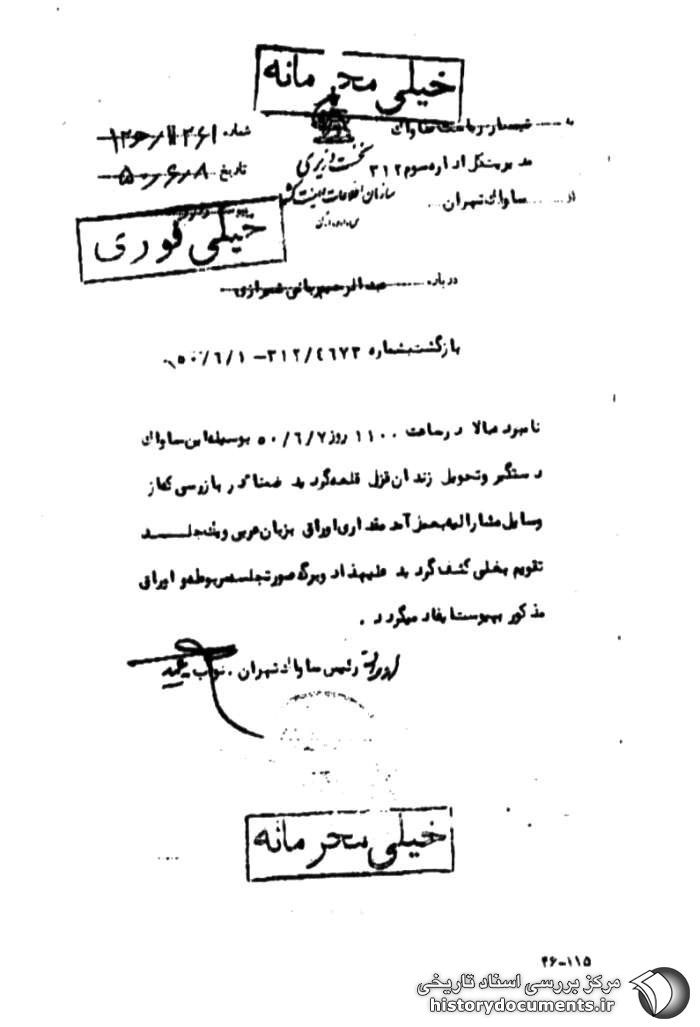 خیلی محرمانه
به تیمسار ریاست ساواک
شماره
مدیریت کل اداره سوم ۳۱۲
نخست وزیری
تاریخ ۵۰/۶/۸
از ساواک تهران
سازمان اطلاعات و امنیت کشور
خیلی فوری
درباره عبدالرحیم ربانی شیرازی
بازگشت بشماره ۳۱۲/٤٦٧٣ – ۵۰/٦/۱
نامبرده بالا در ساعت ۱۱۰۰ روز ۵۰/٦/۷ بوسیله این ساواک
دستگیر و تحویل زندان قزل قلعه گردید ضمنا در بازرسی که از
وسایل مشارالیه بعمل آمد مقداری اوراق بزبان عربی و یک جلد
تقویم بغلی کشف گردید علیهذا دو برگ صورتجلسه مربوطه و اوراق
مذکور به پیوست ایفاد میگردد .
رئیس ساواک تهران . نواب
خیلی محرمانه
۴۶-۱۱۵
مرکز بررسی اسناد تاریخی
historydocuments.ir